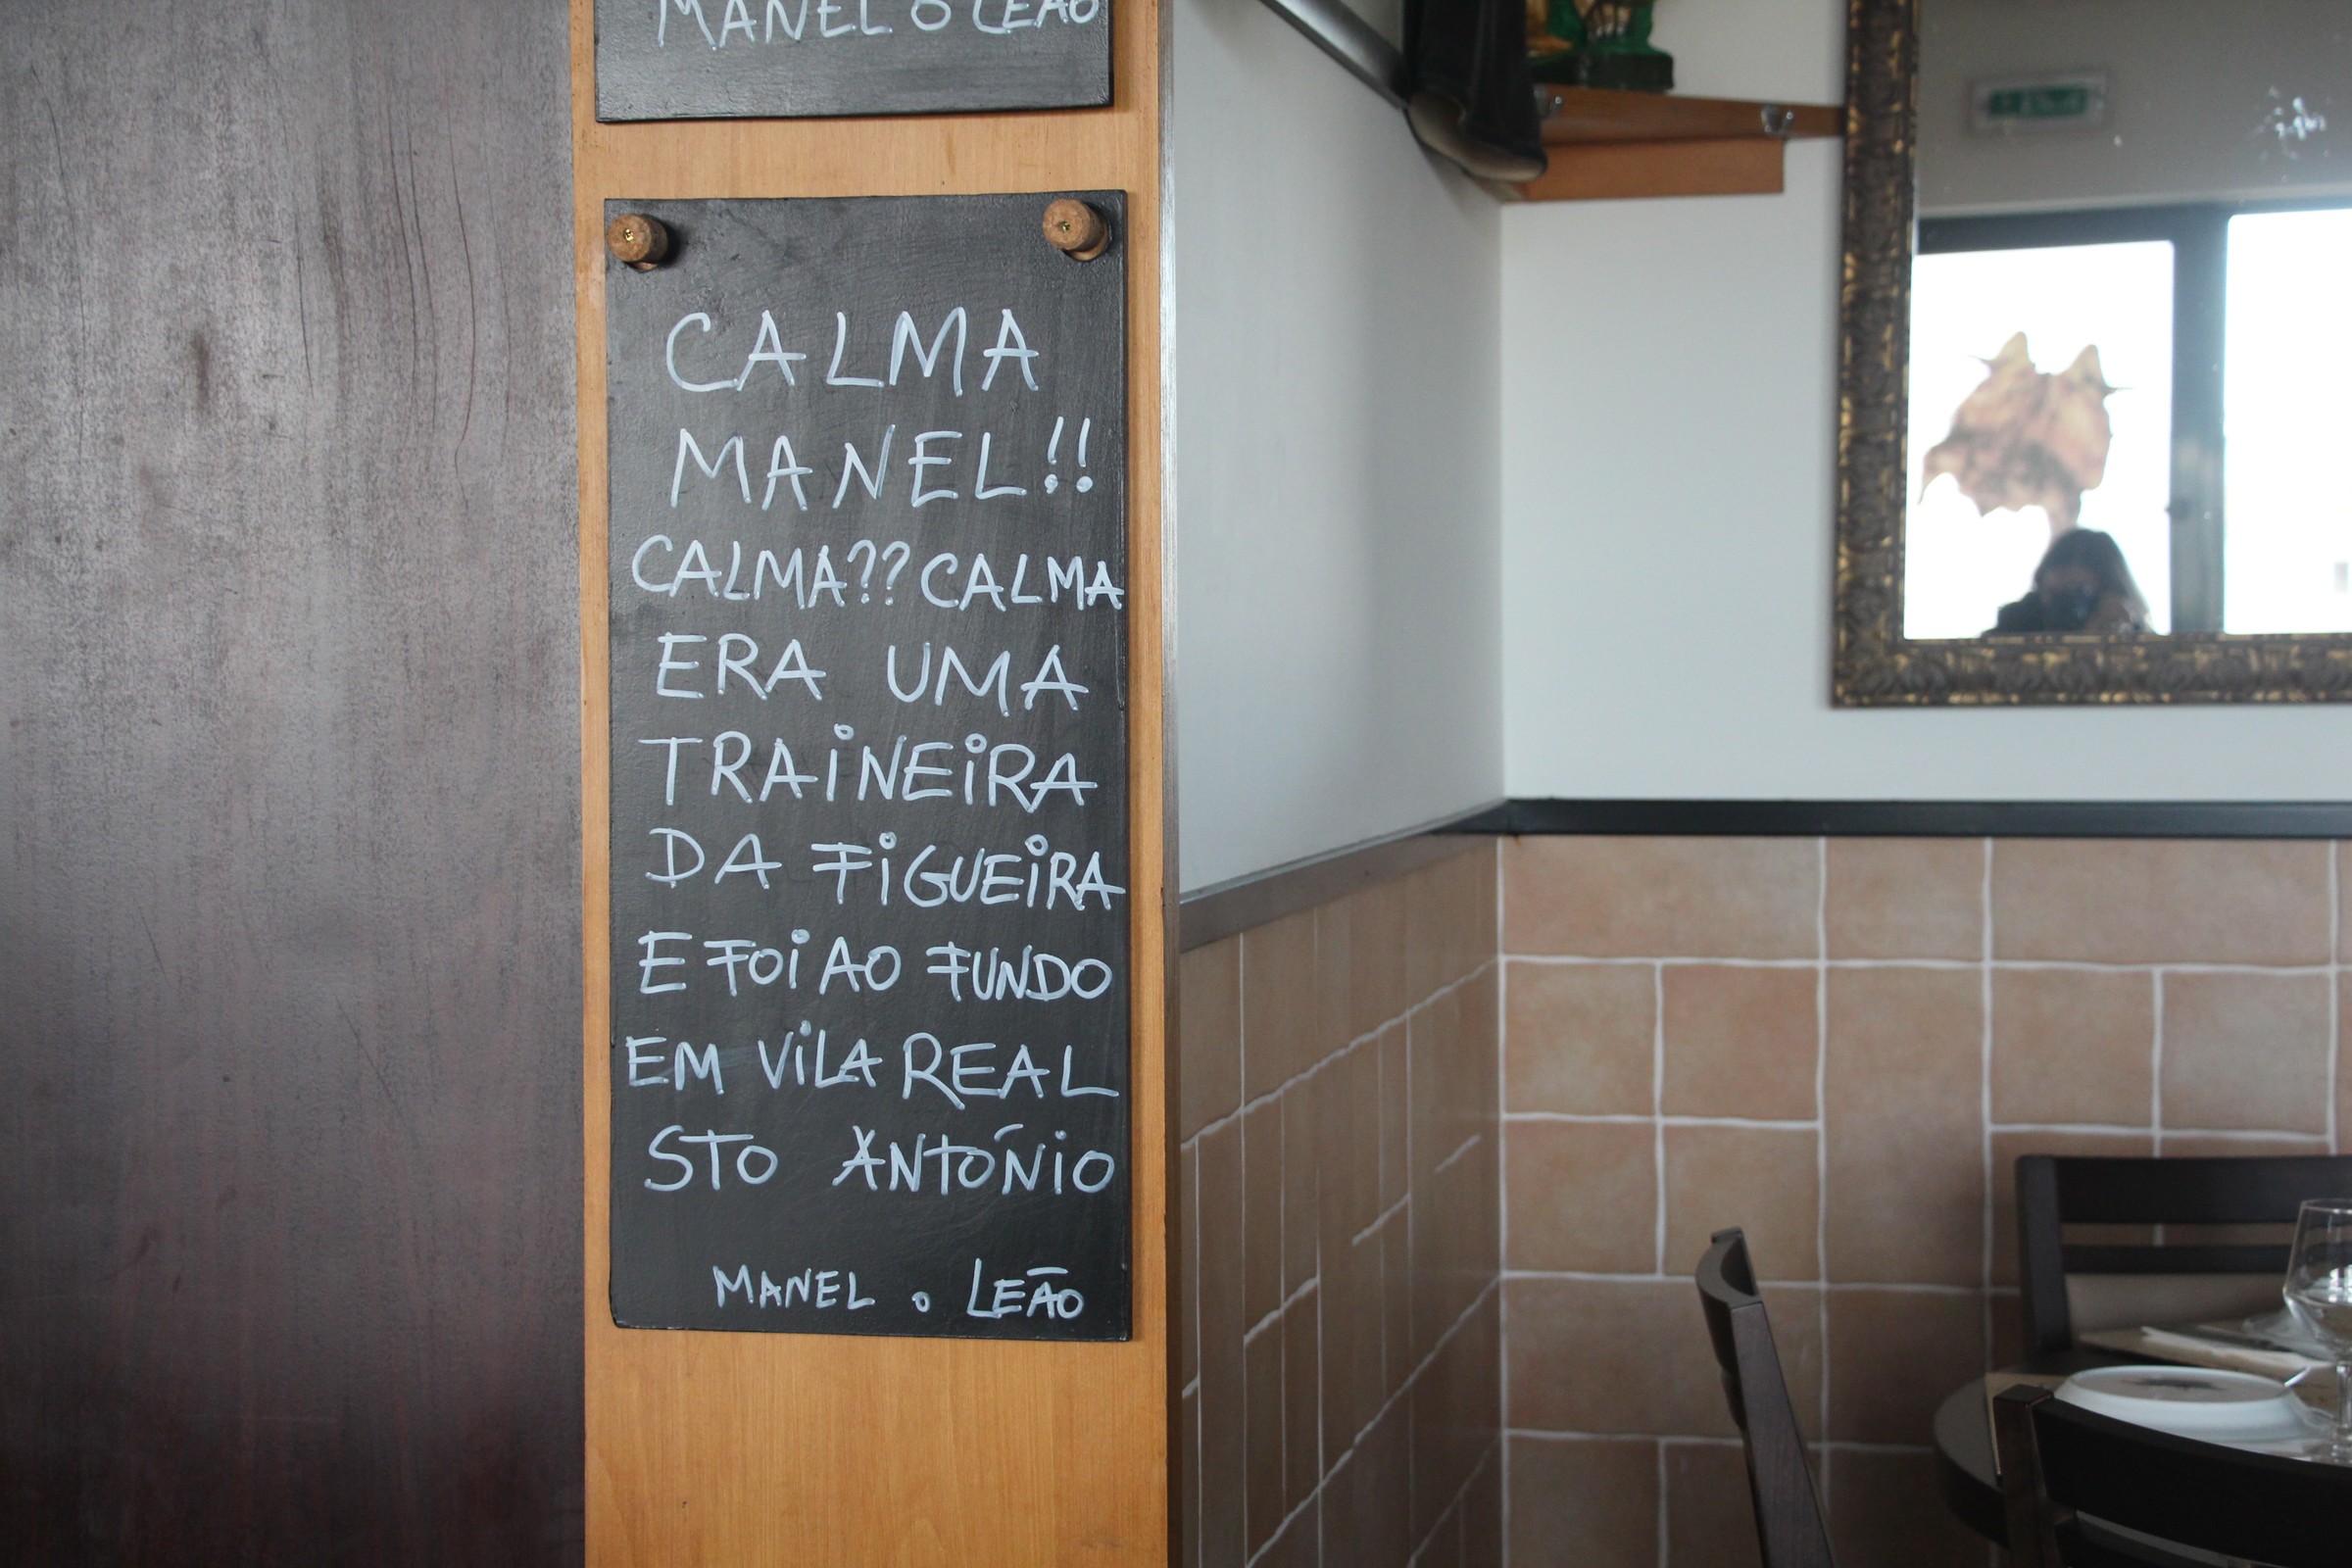 MANEL O LEÃO
CALMA
MANEL!!
CALMA?? CALMA
ERA UMA
TRAiNEiRA
DA FiGUEiRA
E FOi AO FUNDO
EM ViLA REAL
STO ANTÓNiO
MANEL o LEÃO